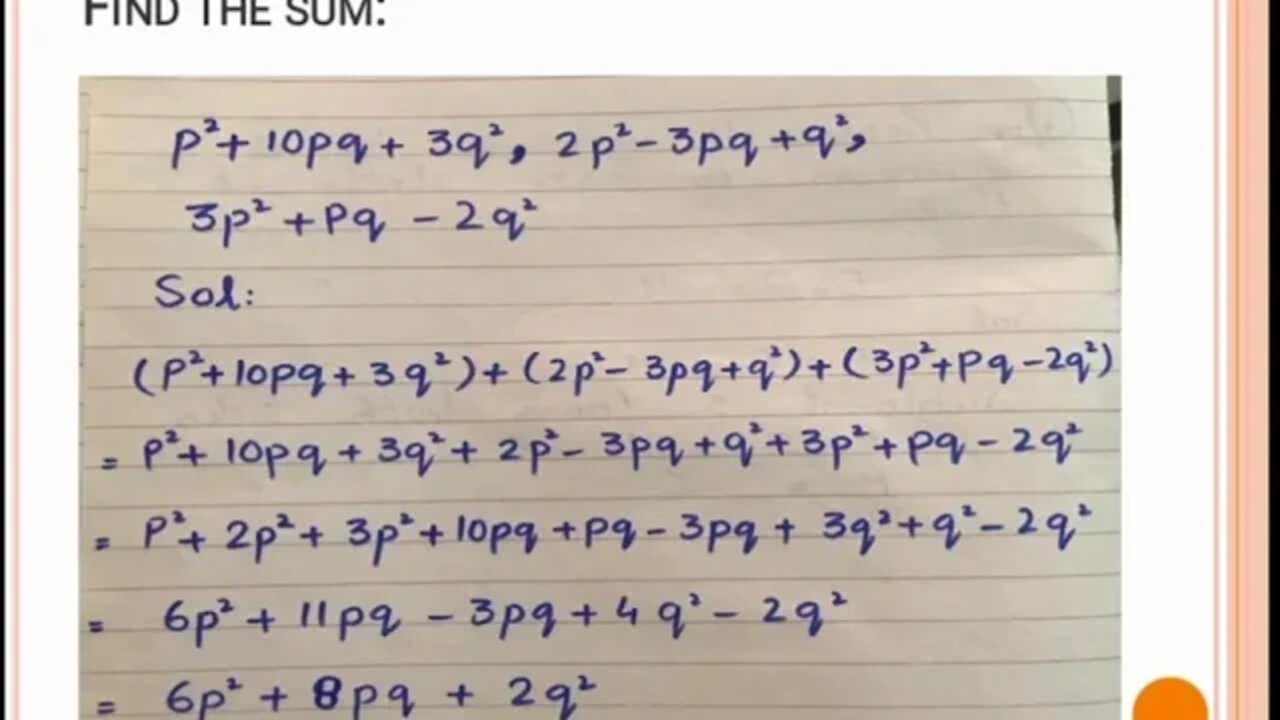 FIND THE SUM:
p²+ 10pq + 3q², 2p²- 3pq +q²,
3p² +pq - 2q²
Sol:
(p²+10pq+ 3q²)+ (2p²- 3pq+q²)+(3p²+pq-2q²)
= p²+ 10pq + 3q²+ 2p²- 3pq +q²+ 3p²+ pq - 2q²
= p²+ 2p²+ 3p²+10pq +pq - 3pq + 3q²+q²- 2q²
= 6p² + 11pq - 3pq + 4q²- 2q²
= 6p² + 8pq + 2q²